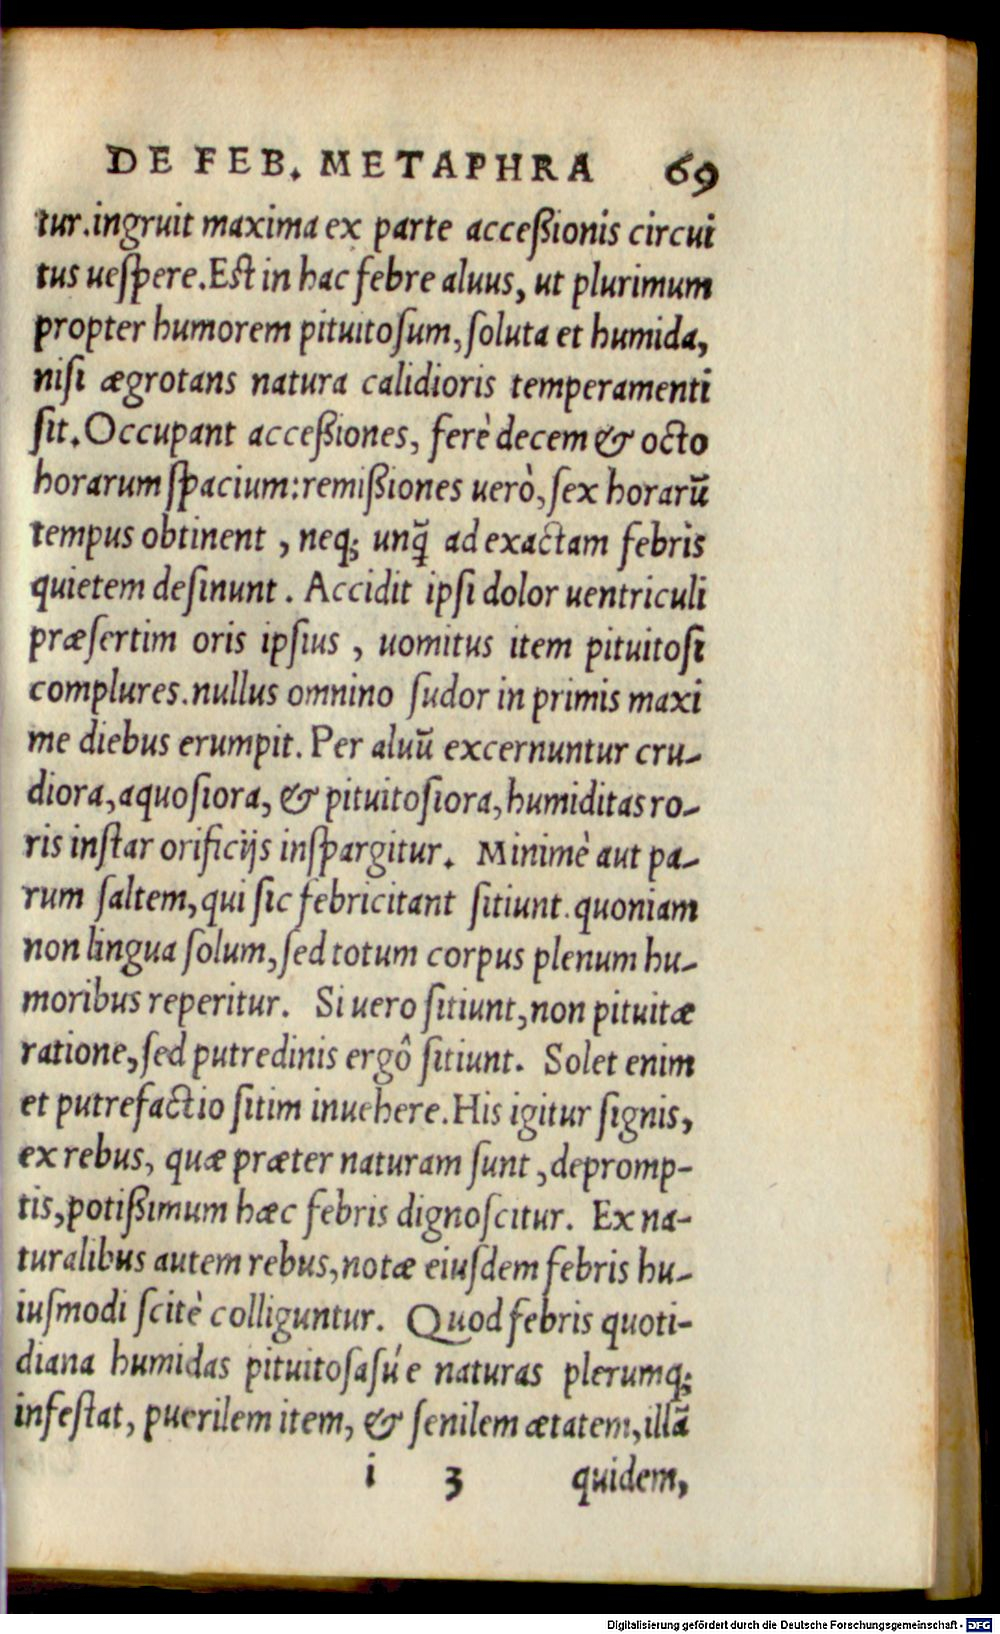 DE FEB. METAPHRA 69
tur.ingruit maxima ex parte acceßionis circui
tus ueſpere.Eſt in hac febre aluus, ut plurimum
propter humorem pituitoſum, ſoluta et humida,
niſi ægrotans natura calidioris temperamenti
ſit. Occupant acceßiones, ferè decem & octo
horarum ſpacium: remißiones uerò, ſex horarū
tempus obtinent , neq; unq̃ ad exactam febris
quietem deſinunt . Accidit ipſi dolor uentriculi
præſertim oris ipſius , uomitus item pituitoſi
complures.nullus omnino ſudor in primis maxi
me diebus erumpit. Per aluū excernuntur cru-
diora, aquoſiora, & pituitoſiora, humiditas ro-
ris inſtar orificijs inſpargitur. Minimè aut pa-
rum ſaltem, qui ſic febricitant ſitiunt.quoniam
non lingua ſolum, ſed totum corpus plenum hu-
moribus reperitur. Si uero ſitiunt, non pituitæ
ratione, ſed putredinis ergô ſitiunt. Solet enim
et putrefactio ſitim inuehere. His igitur ſignis,
ex rebus, quæ præter naturam ſunt , depromp-
tis, potißimum hæc febris dignoſcitur. Ex na-
turalibus autem rebus, notæ eiuſdem febris hu-
iuſmodi ſcitè colliguntur. Quod febris quoti-
diana humidas pituitoſasúe naturas plerumq;
infeſtat, puerilem item, & ſenilem ætatem, illā
i 3 quidem,
Digitalisierung gefördert durch die Deutsche Forschungsgemeinschaft - DFG